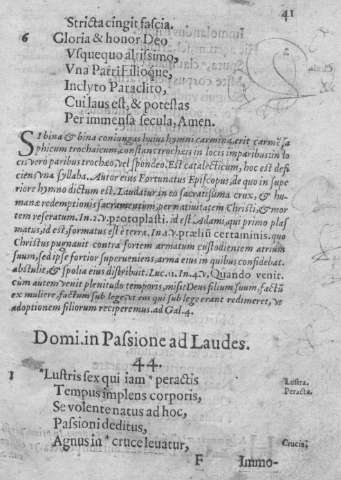 41
Stricta cingit fascia.
6 Gloria & honor Deo
Vsquequo altissimo,
Vna Patri Filioque,
Inclyto Paraclito,
Cui laus est, & potestas
Per immensa secula, Amen.
SI bina & bina coniungas huius hymni carmina, erit carmē sa
phicum trochaicum, constans trochæis in locis imparibus: in lo
cis vero paribus trochæo, vel spondeo. Est catalecticum, hoc est defi
ciens vna syllaba. Autor eius Fortunatus Episcopus, de quo in supe
riore hymno dictum est. Laudatur in eo sacratissima crux, & hu-
manæ redemptionis sacramentum, per natiuitatem Christi, & mor
tem reseratum. In.2.v. protoplasti. id est Adami, qui primo plas
matus, id est, formatus est è terra. In.4.v. præliū certaminis, quo
Christus pugnauit contra fortem armatum custodientem atrium
suum, sed ipse fortior superueniens, arma eius in quibus confidebat.
abstulit, & spolia eius distribuit. Luc.11. In.4.v. Quando venit.
cum autem venit plenitudo temporis, misit Deus filium suum, factū
ex muliere, factum sub lege, vt eos qui sub lege erant redimeret, vt
adoptionem filiorum reciperemus. ad Gal.4.
Domi. in Passione ad Laudes.
44.
1 Lustris sex qui iam * peractis
Lustra.
Tempus implens corporis,
Peracta.
Se volente natus ad hoc,
Passioni deditus,
Agnus in * cruce leuatur,
Crucis.
F Immo-